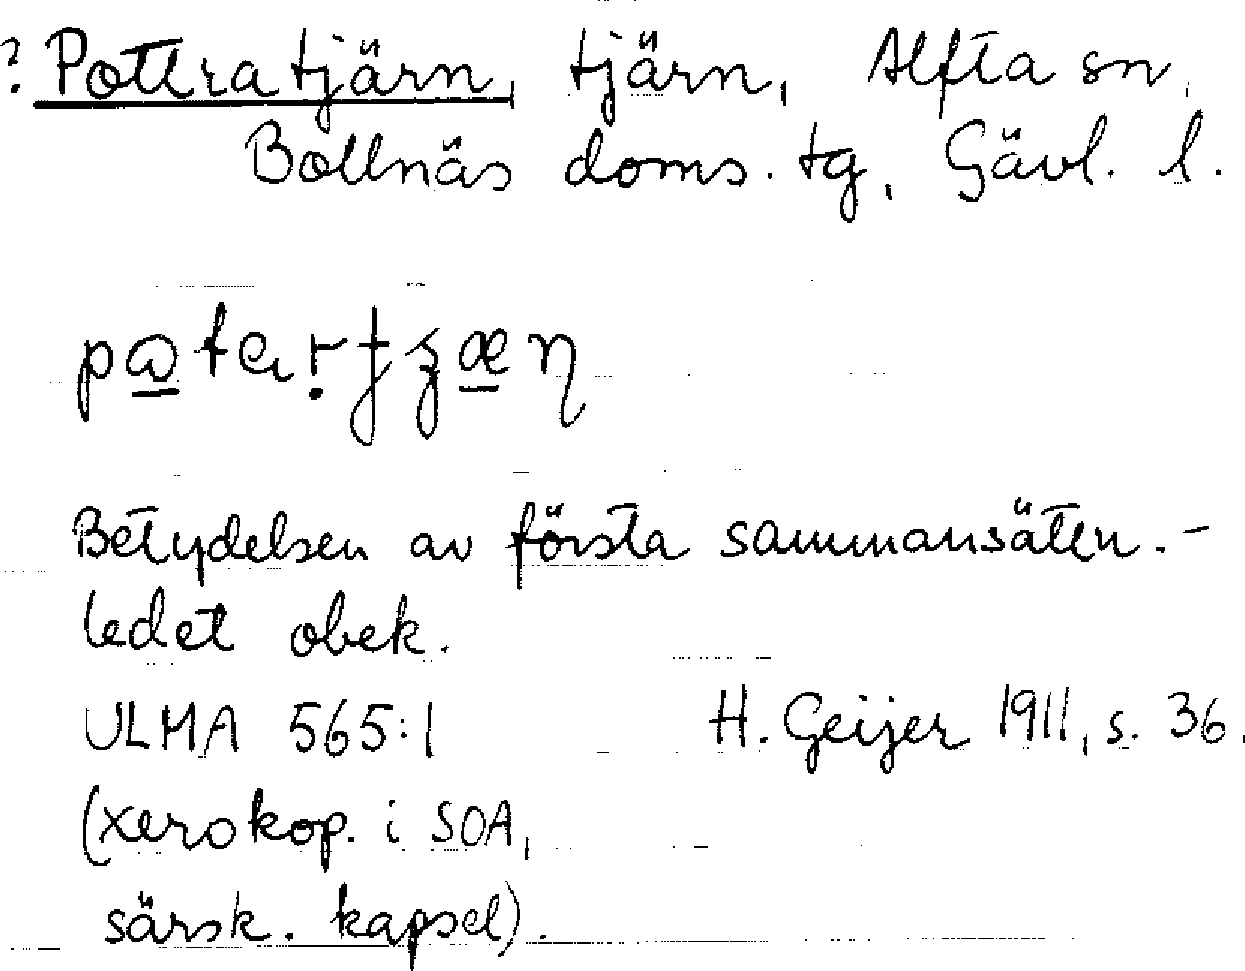 ? Pottratjärn, tjärn, Alfta sn,
Bollnäs doms. tg, Gävl. l.
Betydelsen av första sammansättn.-
ledet obek.
ULMA 565:1 H. Geijer 1911, s. 36.
(xerokop. i SOA,
särsk. kapsel).